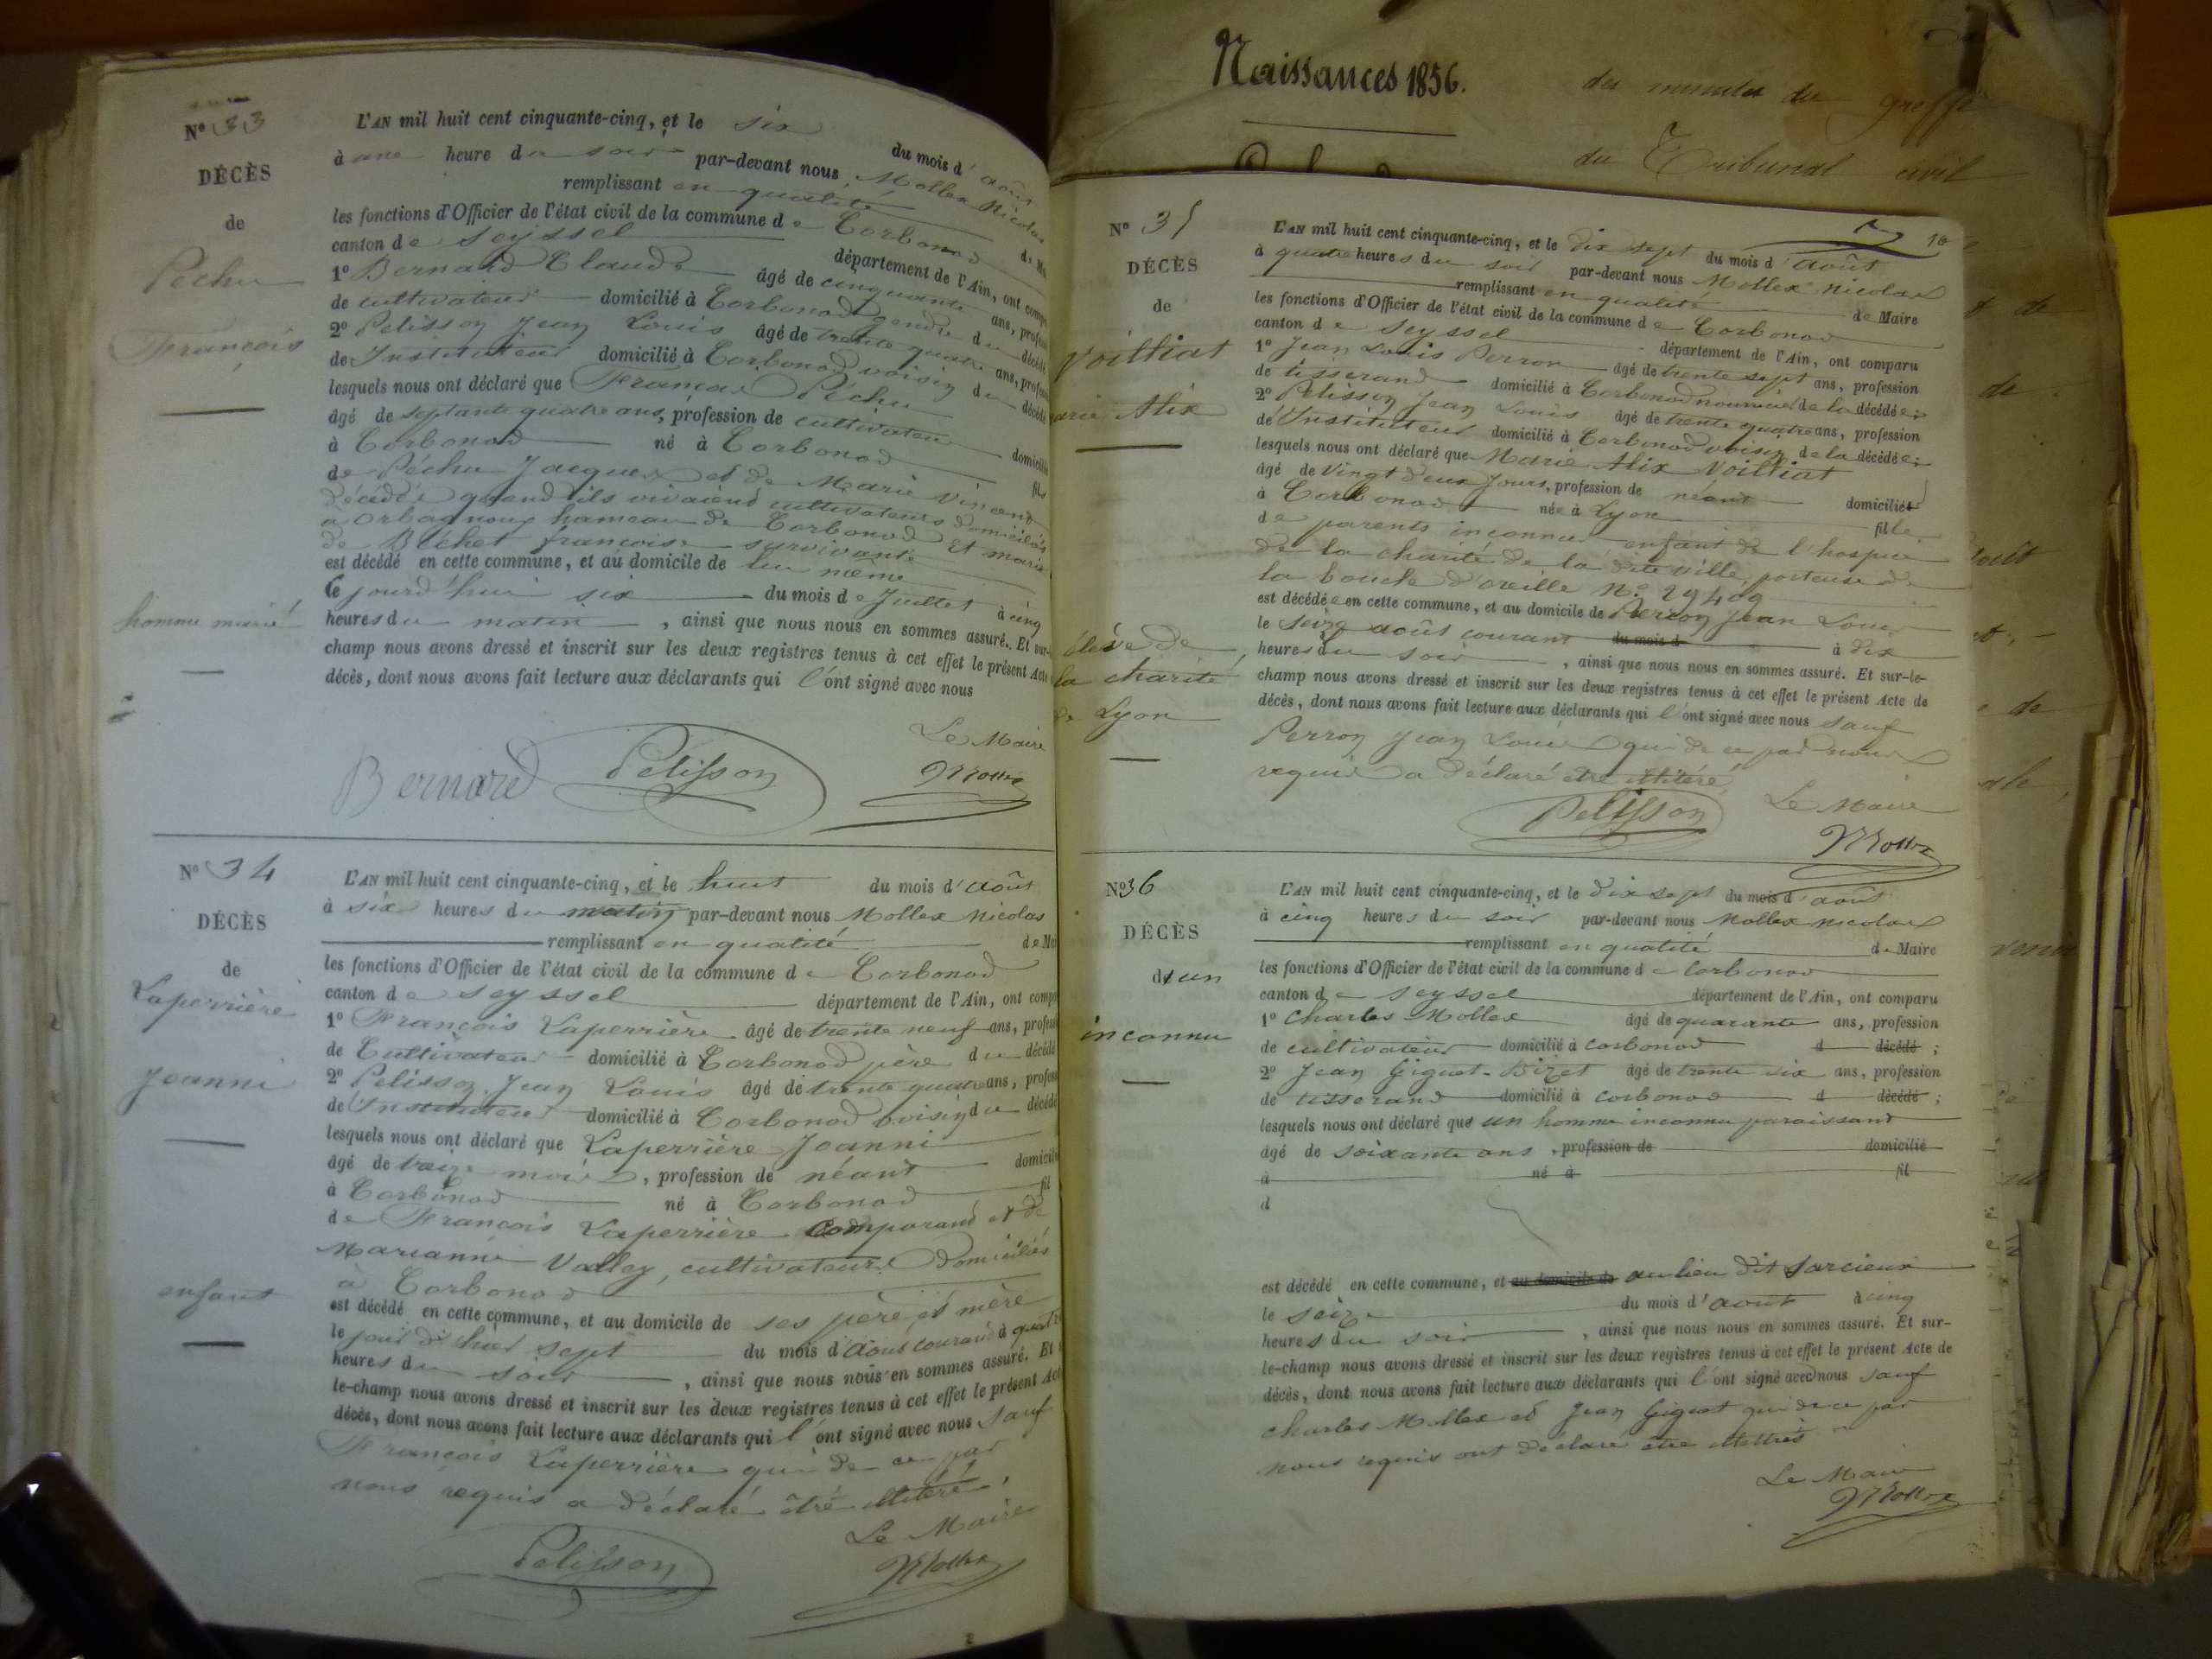 Nº 33
DÉCÈS
de
Péchu
François
homme marié
L'AN mil huit cent cinquante-cinq, et le six du mois d'août
à une heure du soir par-devant nous Mollex Nicolas
remplissant en qualité de
les fonctions d'Officier de l'état civil de la commune de Corbonod
canton de Seyssel département de l'Ain, ont
1º Bernard Claude âgé de cinquante ans,
de cultivateur domicilié à Corbonod gendre du décédé
2º Pelisson Jean Louis âgé de trente quatre ans,
de Instituteur domicilié à Corbonod voisin du décédé
lesquels nous ont déclaré que François Péchu
âgé de septante quatre ans, profession de cultivateur domicilié
à Corbonod né à Corbonod fils
de Péchu Jacques et de Marie Vincent
décédés quand ils vivaient cultivateurs domiciliés
à Orbagnoux hameau de Corbonod Et marié
de Béchet françoise survivante
est décédé en cette commune, et au domicile de lui même
le jourd'hui six du mois de Juillet à cinq
heures du matin, ainsi que nous nous en sommes assuré. Et sur-
champ nous avons dressé et inscrit sur les deux registres tenus à cet effet le présent Acte
décès, dont nous avons fait lecture aux déclarants qui l'ont signé avec nous
Le Maire
Bernard Pelisson Mollex
Nº 34
DÉCÈS
de
Laperrière
Joanni
enfant
L'AN mil huit cent cinquante-cinq, et le huit du mois d'août
à six heures du matin par-devant nous Mollex Nicolas
remplissant en qualité de
les fonctions d'Officier de l'état civil de la commune de Corbonod
canton de Seyssel département de l'Ain, ont
1º François Laperrière âgé de trente neuf ans,
de Cultivateur domicilié à Corbonod père du décédé
2º Pelisson Jean Louis âgé de trente quatre ans,
de Instituteur domicilié à Corbonod voisin du décédé
lesquels nous ont déclaré que Laperrière Joanni
âgé de treize mois, profession de néant domicilié
à Corbonod né à Corbonod fil
de François Laperrière Comparant et de
Marianne Valley, cultivateurs Domiciliés
à Corbonod
est décédé en cette commune, et au domicile de ses père et mère
le jour d'hier sept du mois d'août courant à quatre
heures du soir, ainsi que nous nous en sommes assuré. Et
le-champ nous avons dressé et inscrit sur les deux registres tenus à cet effet le présent Acte
décès, dont nous avons fait lecture aux déclarants qui l'ont signé avec nous sauf
François Laperrière qui de ce par
nous requis a déclaré être illitéré.
Le Maire
Pelisson Mollex
Naissances 1856.
des minutes du greffe
du Tribunal civil
10
Nº 35
DÉCÈS
de
Voilliat
Marie Alix
élève de
la charité
de Lyon
L'AN mil huit cent cinquante-cinq, et le dix sept du mois d'août
à quatre heures du soir par-devant nous Mollex Nicolas
remplissant en qualité de Maire
les fonctions d'Officier de l'état civil de la commune de Corbonod
canton de Seyssel département de l'Ain, ont comparu
1º Jean Louis Perron âgé de trente sept ans, profession
de tisserand domicilié à Corbonod nourricier de la décédée;
2º Pelisson Jean Louis âgé de trente quatre ans, profession
de Instituteur domicilié à Corbonod voisin de la décédée;
lesquels nous ont déclaré que Marie Alix Voilliat
âgé de vingt deux jours, profession de néant domiciliée
à Corbonod née à Lyon fille
de parents inconnus enfant de l'hospice
de la charité de la dite ville, porteuse de
la boucle d'oreille Nº 29409
est décédée en cette commune, et au domicile de Perron Jean Louis
le seize août courant du mois d à dix
heures du soir, ainsi que nous nous en sommes assuré. Et sur-le-
champ nous avons dressé et inscrit sur les deux registres tenus à cet effet le présent Acte de
décès, dont nous avons fait lecture aux déclarants qui l'ont signé avec nous sauf
Perron Jean Louis qui de ce par nous
requis a déclaré être illitéré.
Le Maire
Pelisson Mollex
Nº 36
DÉCÈS
d'un
inconnu
L'AN mil huit cent cinquante-cinq, et le dix sept du mois d'août
à cinq heures du soir par-devant nous Mollex Nicolas
remplissant en qualité de Maire
les fonctions d'Officier de l'état civil de la commune de Corbonod
canton de Seyssel département de l'Ain, ont comparu
1º Charles Mollex âgé de quarante ans, profession
de cultivateur domicilié à Corbonod d décédé;
2º Jean Giguet-Bizet âgé de trente six ans, profession
de tisserand domicilié à Corbonod d décédé;
lesquels nous ont déclaré que un homme inconnu paraissant
âgé de soixante ans, profession de domicilié
à né à fil
d
est décédé en cette commune, et au domicile de au lieu dit Sarcieux
le seize du mois d'août à cinq
heures du soir, ainsi que nous nous en sommes assuré. Et sur-
le-champ nous avons dressé et inscrit sur les deux registres tenus à cet effet le présent Acte de
décès, dont nous avons fait lecture aux déclarants qui l'ont signé avec nous sauf
Charles Mollex et Jean Giguet qui de ce par
nous requis ont déclaré être illettrés
Le Maire
Mollex